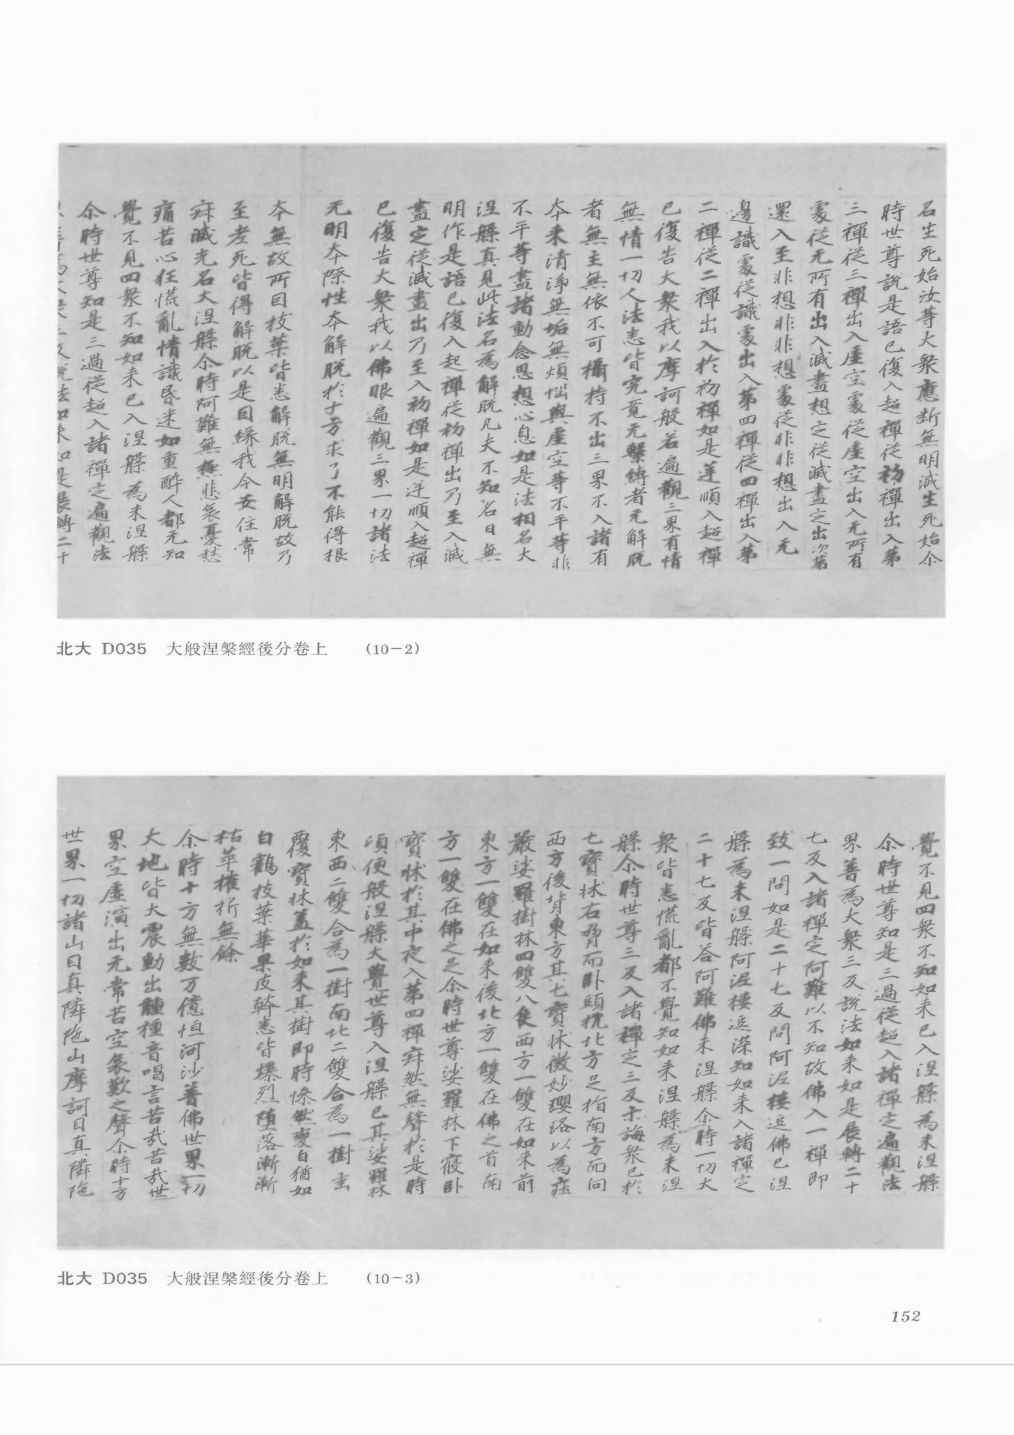 名生死始汝等大衆應斷無明滅生死始尒
時世尊說是語已復入超禪從初禪出入第
三禪從三禪出入虛空處從虛空出入无所有
處從无所有出入滅盡想定從滅盡定出次第
還入至非想非非想處從非非想出入无
邊識處從識處出入第四禪從四禪出入第
二禪從二禪出入於初禪如是逆順入超禪
已復告大衆我以摩訶般若遍觀三界有情
無情一切人法悉皆究竟无繫縛者无解脫
者無主無依不可攝持不出三界不入諸有
本來清淨無垢無煩惱與虛空等不平等非
不平等盡諸動念思想心息如是法相名大
涅槃真見此法名為解脫凡夫不知名曰無
明作是語已復入超禪從初禪出乃至入滅
盡定從滅盡出乃至入初禪如是逆順入超禪
已復告大衆我以佛眼遍觀三界一切諸法
无明本際性本解脫於十方求了不能得根
本無故所因枝葉皆悉解脫無明解脫故乃
至老死皆得解脫以是因緣我今安住常
寂滅光名大涅槃尒時阿難無極悲哀憂愁
痛苦心狂慌亂情識昏迷如重醉人都无知
覺不見四衆不知如來已入涅槃為未涅槃
尒時世尊知是三過從超入諸禪定遍觀法
北大 D035 大般涅槃經後分卷上 (10-2)
覺不見四衆不知如來已入涅槃為未涅槃
尒時世尊知是三過從超入諸禪定遍觀法
界普為大衆三反說法如來如是展轉二十
七反入諸禪定阿難以不知故佛入一禪即
致一問如是二十七反問阿泥樓逗佛已涅
槃為未涅槃阿泥樓逗深知如來入諸禪定
二十七反皆答阿難佛未涅槃尒時一切大
衆皆悉慌亂都不覺知如來涅槃為未涅
槃尒時世尊三反入諸禪定三反示誨衆已於
七寶牀右脅而臥頭枕北方足指南方面向
西方後背東方其七寶牀微妙瓔珞以為莊
嚴娑羅樹林四雙八隻西方一雙在如來前
東方一雙在如來後北方一雙在佛之首南
方一雙在佛之足尒時世尊娑羅林下寢臥
寶牀於其中夜入第四禪寂然無聲於是時
頃便般涅槃大覺世尊入涅槃已其娑羅林
東西二雙合為一樹南北二雙合為一樹垂
覆寶牀蓋於如來其樹即時慘然變白猶如
白鶴枝葉華果皮幹悉皆爆烈墮落漸漸
枯萃摧折無餘
尒時十方無數万億恒河沙普佛世界一切
大地皆大震動出種種音唱言苦哉苦哉世
界空虛演出无常苦空哀歎之聲尒時十方
世界一切諸山目真隣陁山摩訶目真隣陁
北大 D035 大般涅槃經後分卷上 (10-3)
152